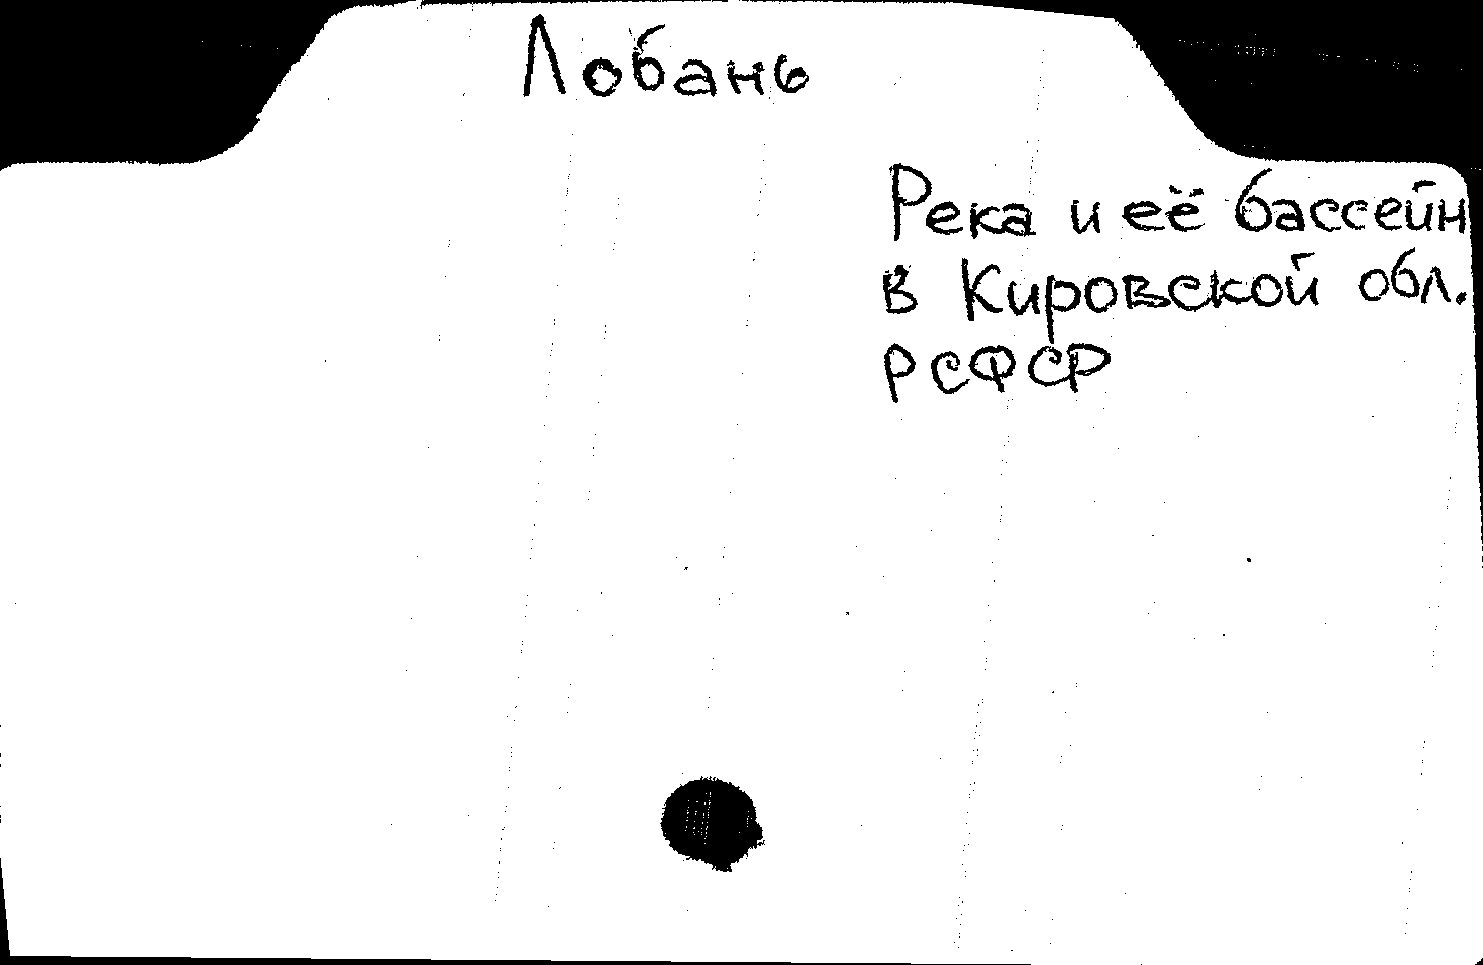 Лобань
Река и её бассейн
в Кировской обл.
РСФСР